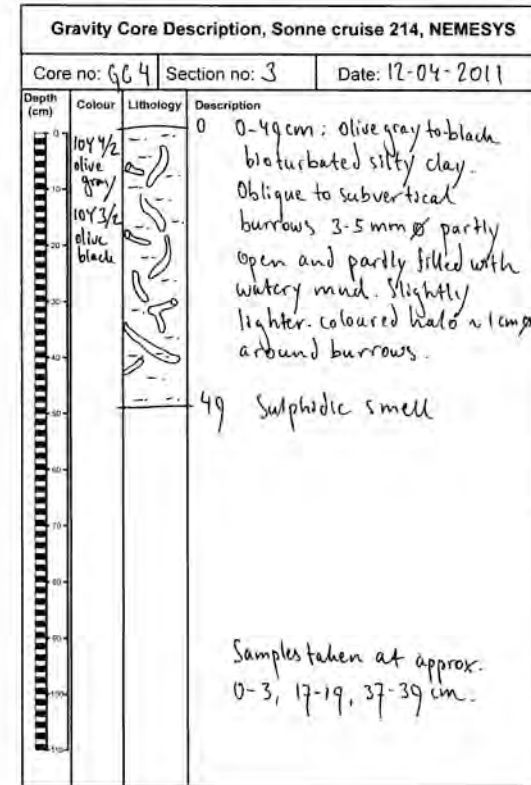 Gravity Core Description, Sonne cruise 214, NEMESYS
Core no: GC4 Section no: 3 Date: 12-04-2011
Depth (cm) Colour Lithology Description
0
10
20
30
40
50
60
70
80
90
100
110
10Y 4/2
olive
gray
10Y 3/2
olive
black
0 0-49cm: Olive gray to black
bioturbated silty clay.
Oblique to subvertical
burrows 3-5 mm ø partly
open and partly filled with
watery mud. Slightly
lighter. coloured halo ~1cmø
around burrows.
49 Sulphidic smell
Samples taken at approx.
0-3, 17-19, 37-39 cm.